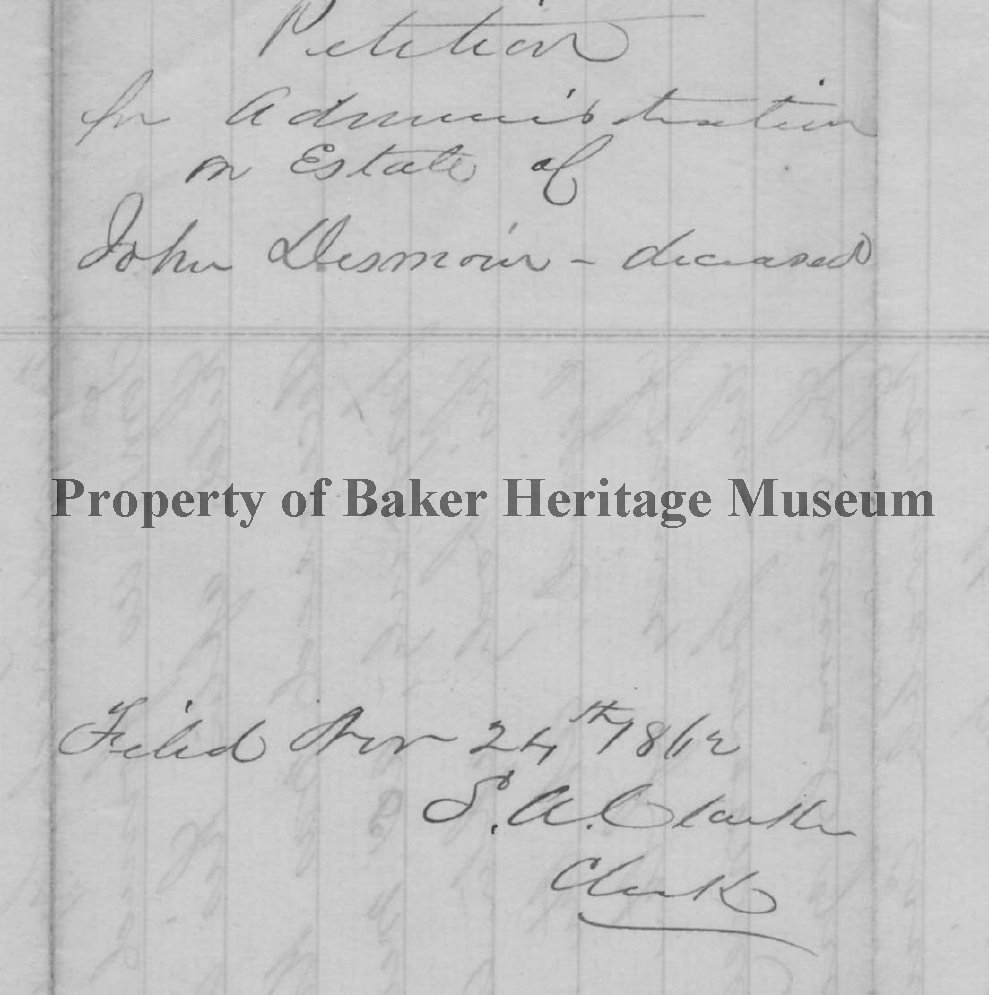 Petition
for Administration
on Estate of
John Desmoin - deceased
Property of Baker Heritage Museum
Filed Nov 24th 1862
S. A. Clarke
Clerk